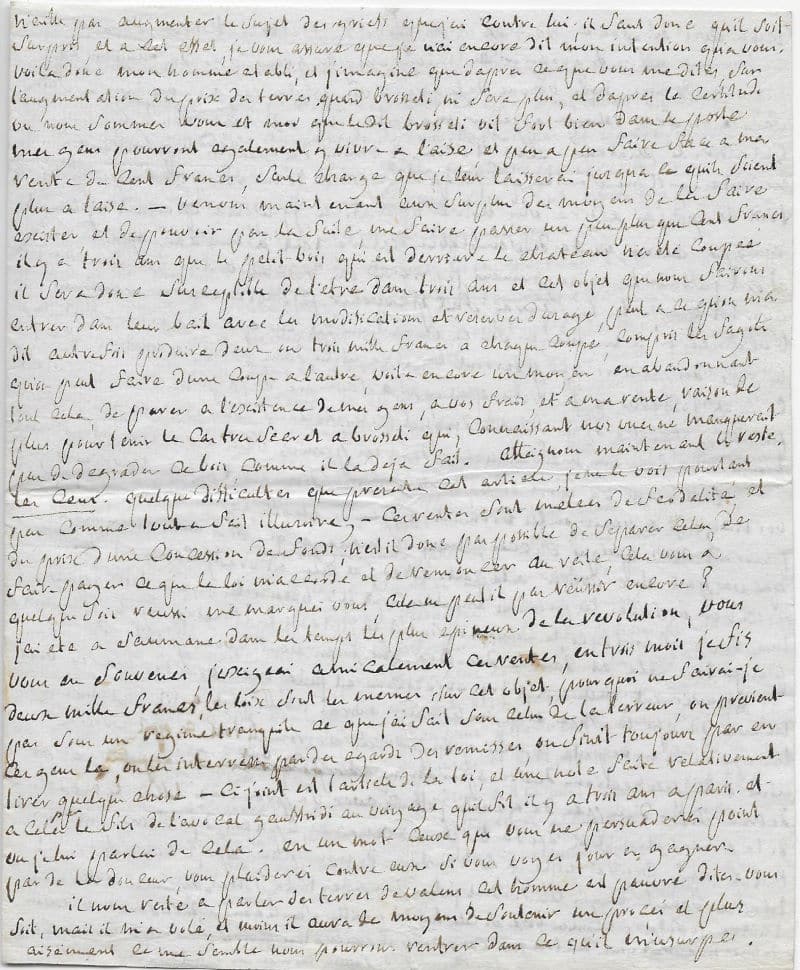 n'aille pas augmenter le sujet des griefs que j'ai contre lui. il faut donc qu'il soit
surpris, et a cet effet, je vous assure que je n'ai encore dit mon intention qu'a vous.
voila donc mon homme etabli, et j'imagine que d'apres ce que vous me dites, sur
l'augmentation du prix des terres quand brosseli ni sera plus, et d'apres la certitude
ou nous sommes vous et moi que le dit brosseli vit fort bien dans le poste
mes gens pourront egalement y vivre a l'aise et peu a peu faire face a ma
rente de cent francs, seule charge que je leur laisserai jusqu'a ce qu'ils soient
plus a l'aise. — venons maintenant aux surplus des moyens de les faire
exister et de pouvoir par la suite me faire passer un peu plus que cent francs
il y a trois ans que le petit bois qui est derriere le chateau n'a ete coupé
il sera donc susceptible de l'etre dans trois ans et cet objet que nous fairons
entrer dans leur bail avec les modifications et reserves d'usage, peut a ce qu'on m'a
dit autrefois produire deux ou trois mille francs a chaque coupe, compris les fagots
qu'on peut faire d'une coupe a l'autre, voila encore un moyen en abandonnant
tout cela, de parer a l'existence de mes gens, a vos frais, et a ma rente, raison de
plus pour tenir le cas tres secret a brosseli qui, connaissant nos vues ne manquerait
pas de degrader ce bois comme il l'a deja fait. atteignons maintenant le reste,
les ceux. quelque difficultés que presente cet article, je ne le vois pourtant
pas comme tout a fait illusoire, — ces rentes sont mêlées de feodalité, et
du prix d'une concession de fonds, n'est il donc pas possible de separer cela, de
faire payer ce que la loi m'accorde et de renoncer au reste, cela vous a
quelque fois reussi me marques vous, cela ne peut il pas réussir encore ?
j'ai ete a saumane dans les temps les plus epineux de la revolution, vous
vous en souvenes, j'exigeai amicalement ces rentes, en trois mois je fis
deux mille francs, les loix sont les memes sur cet objet, pourquoi ne fairai-je
pas sous un regime tranquile ce que j'ai fait sous celui de la terreur, on previent
ces gens la, on les interresse par des egards des remises on finit toujours par en
tirer quelque chose — Ci joint est l'article de la loi, et une note faite relativement
a cela le fils de l'avocat gaufridi au voyage qu'il fit il y a trois ans a paris et
ou je lui parlai de cela. en un mot ceux que vous ne persuaderes point
par de la douceur, vous plaideres contre eux si vous voyes jour a gagner
il nous reste a parler des terres de valens cet homme est pauvre dites-vous
soit, mais il m'a volé, et moins il aura de moyens de soutenir un procés et plus
aisement ce me semble nous pourrons rentrer dans ce qu'il m'usurpe.